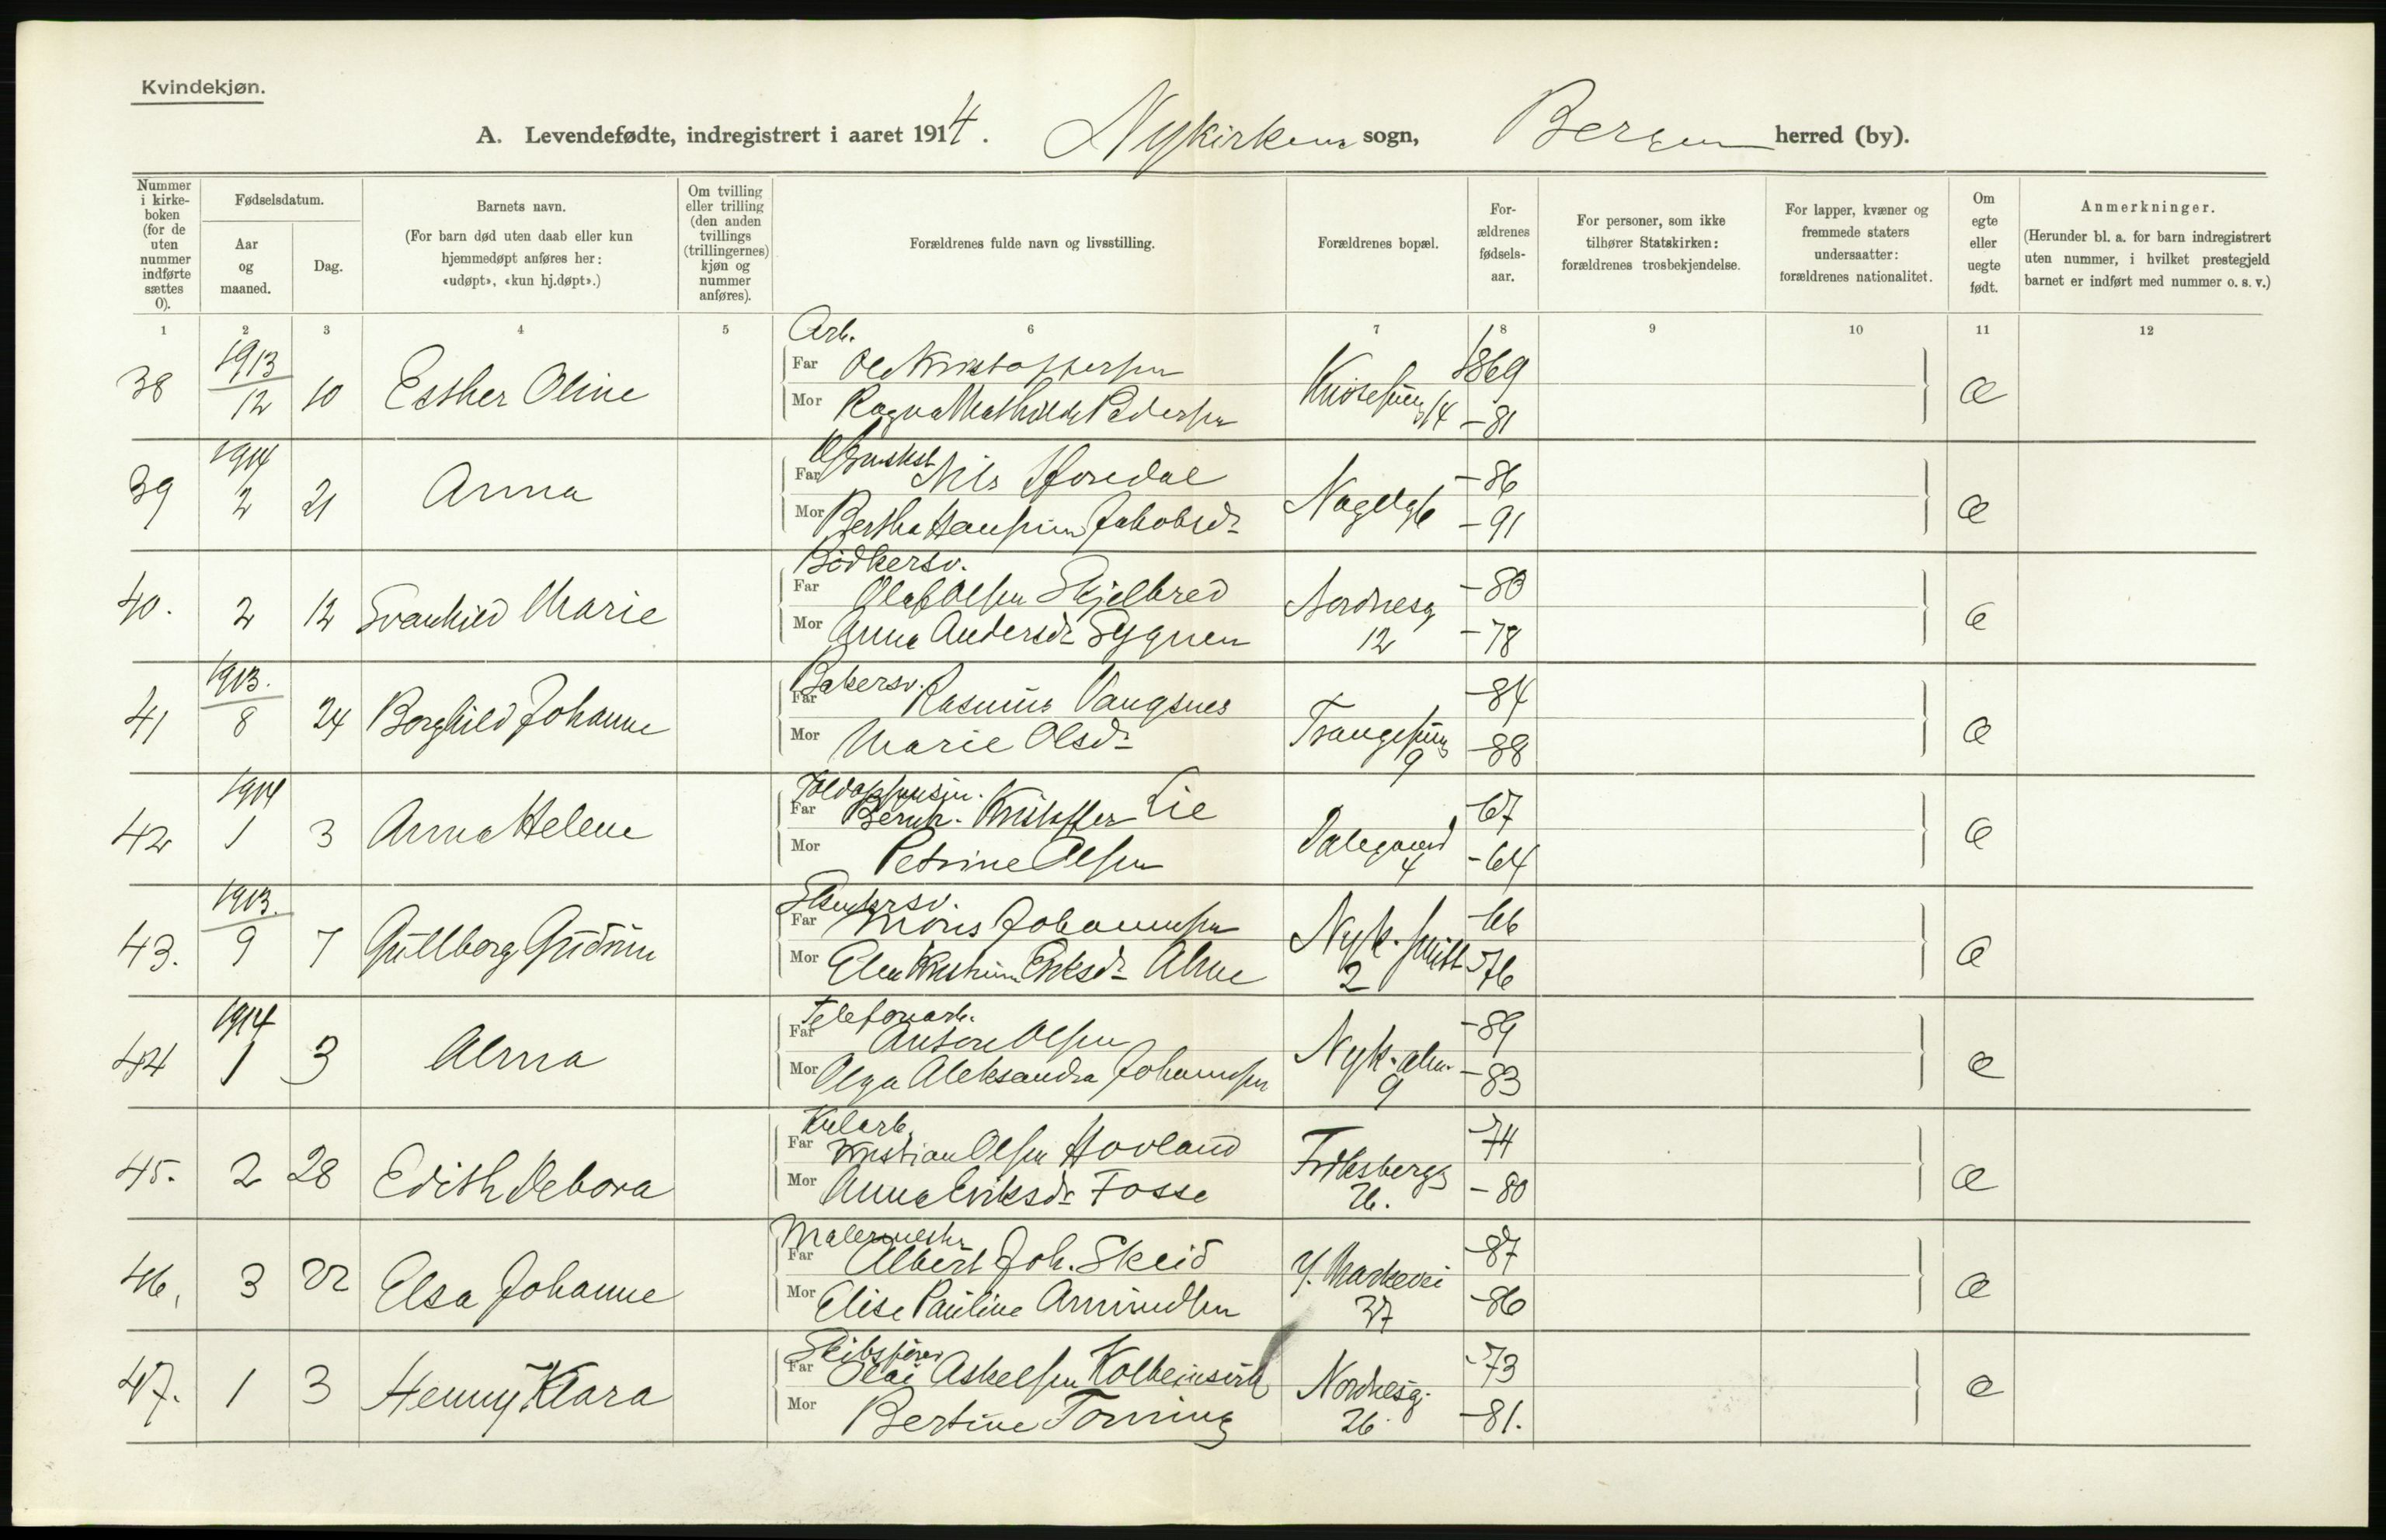 Kvindekjøn.
A. Levendefødte, indregistrert i aaret 1914. Nykirkens sogn, Bergen herred (by).
Nummer i kirke-boken (for de uten nummer indførte sættes 0).
Fødselsdatum.
Aar og maaned.
Dag.
Barnets navn.
(For barn død uten daab eller kun hjemmedøpt anføres her: «udøpt», «kun hj.døpt».)
Om tvilling eller trilling (den anden tvillings (trillingernes) kjøn og nummer anføres).
Forældrenes fulde navn og livsstilling.
Forældrenes bopæl.
For-ældrenes fødsels-aar.
For personer, som ikke tilhører Statskirken: forældrenes trosbekjendelse.
For lapper, kvæner og fremmede staters undersaatter: forældrenes nationalitet.
Om egte eller uegte født.
Anmerkninger.
(Herunder bl. a. for barn indregistrert uten nummer, i hvilket prestegjeld barnet er indført med nummer o. s. v.)
1 2 3 4 5 6 7 8 9 10 11 12
Arb.
38 1913 12 10 Esther Oline Far Ole Kristoffersen 1869
Mor Ragna Mathilde Pedersen 14 -81
39 1914 2 21 Anna Far Nils -86
Mor Bertha Jakobsdr Nagelg 6 -91
Bødkersv.
40. 2 12 Svanhild Marie Far Olaf Olsen Skjelbred Nordnesg -80
Mor Anna Andersdr Sygnen 12 -78
Bakersv.
41 1913. 8 24 Borghild Johanne Far Rasmus Vangsnes -84
Mor Marie Olsdr 9 -88
42 1914 1 3 Anna Helene Far Bernh. Kristoffer Lie -67
Mor Petrine Olsen 4 -64
43. 1913. 9 7 Gullborg Gudrun Far Mons Johannessen -66
Mor Elen Kristine Eriksdr 2 -76
Telefonarb.
44 1914 1 3 Alma Far Anton Olsen Nyk. alm. -89
Mor Olga Aleksandra Johannesen 9 -83
Kularb.
45. 2 28 Edith Debora Far Kristian Olsen Hovland -74
Mor Anna Eriksdr Fosse 26. -80
Malermester
46, 3 22 Elsa Johanne Far Albert Joh. Skeid Y. Markevei -87
Mor Elise Pauline Amundsen 37 -86
Skibsfører
47. 1 3 Henny Klara Far Olai Askelsen Nordnesg. -73
Mor Bertine 26 -81.